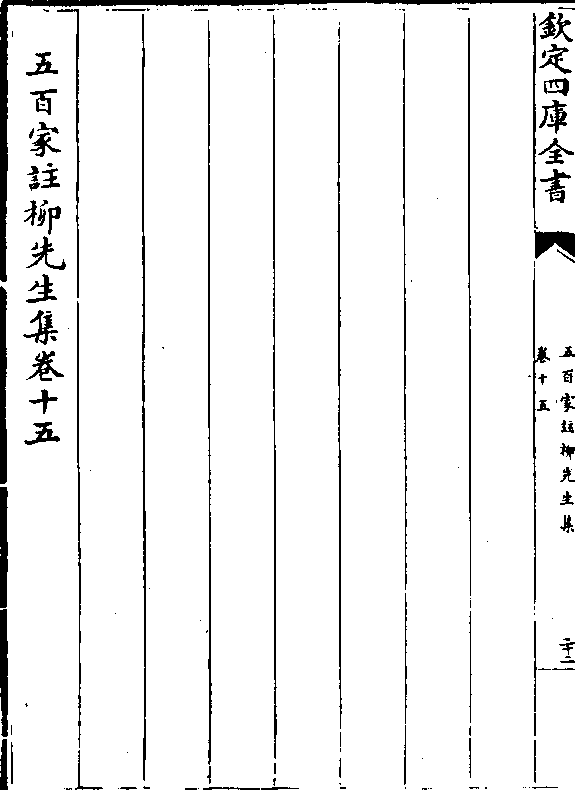 欽定四庫全書
五百家註柳先生集
卷十五
二十二
五百家註柳先生集卷十五